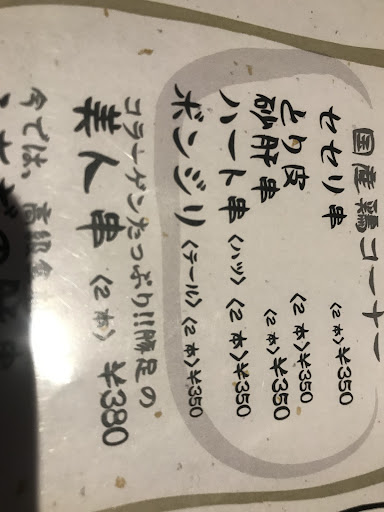 国産鶏コーナー
セセリ串〈2本〉¥350
とり皮〈2本〉¥350
砂肝串〈2本〉¥350
ハート串〈ハツ〉〈2本〉¥350
ボンジリ〈テール〉〈2本〉¥350
コラーゲンたっぷり!!豚足の
美人串〈2本〉¥380
今では、高級